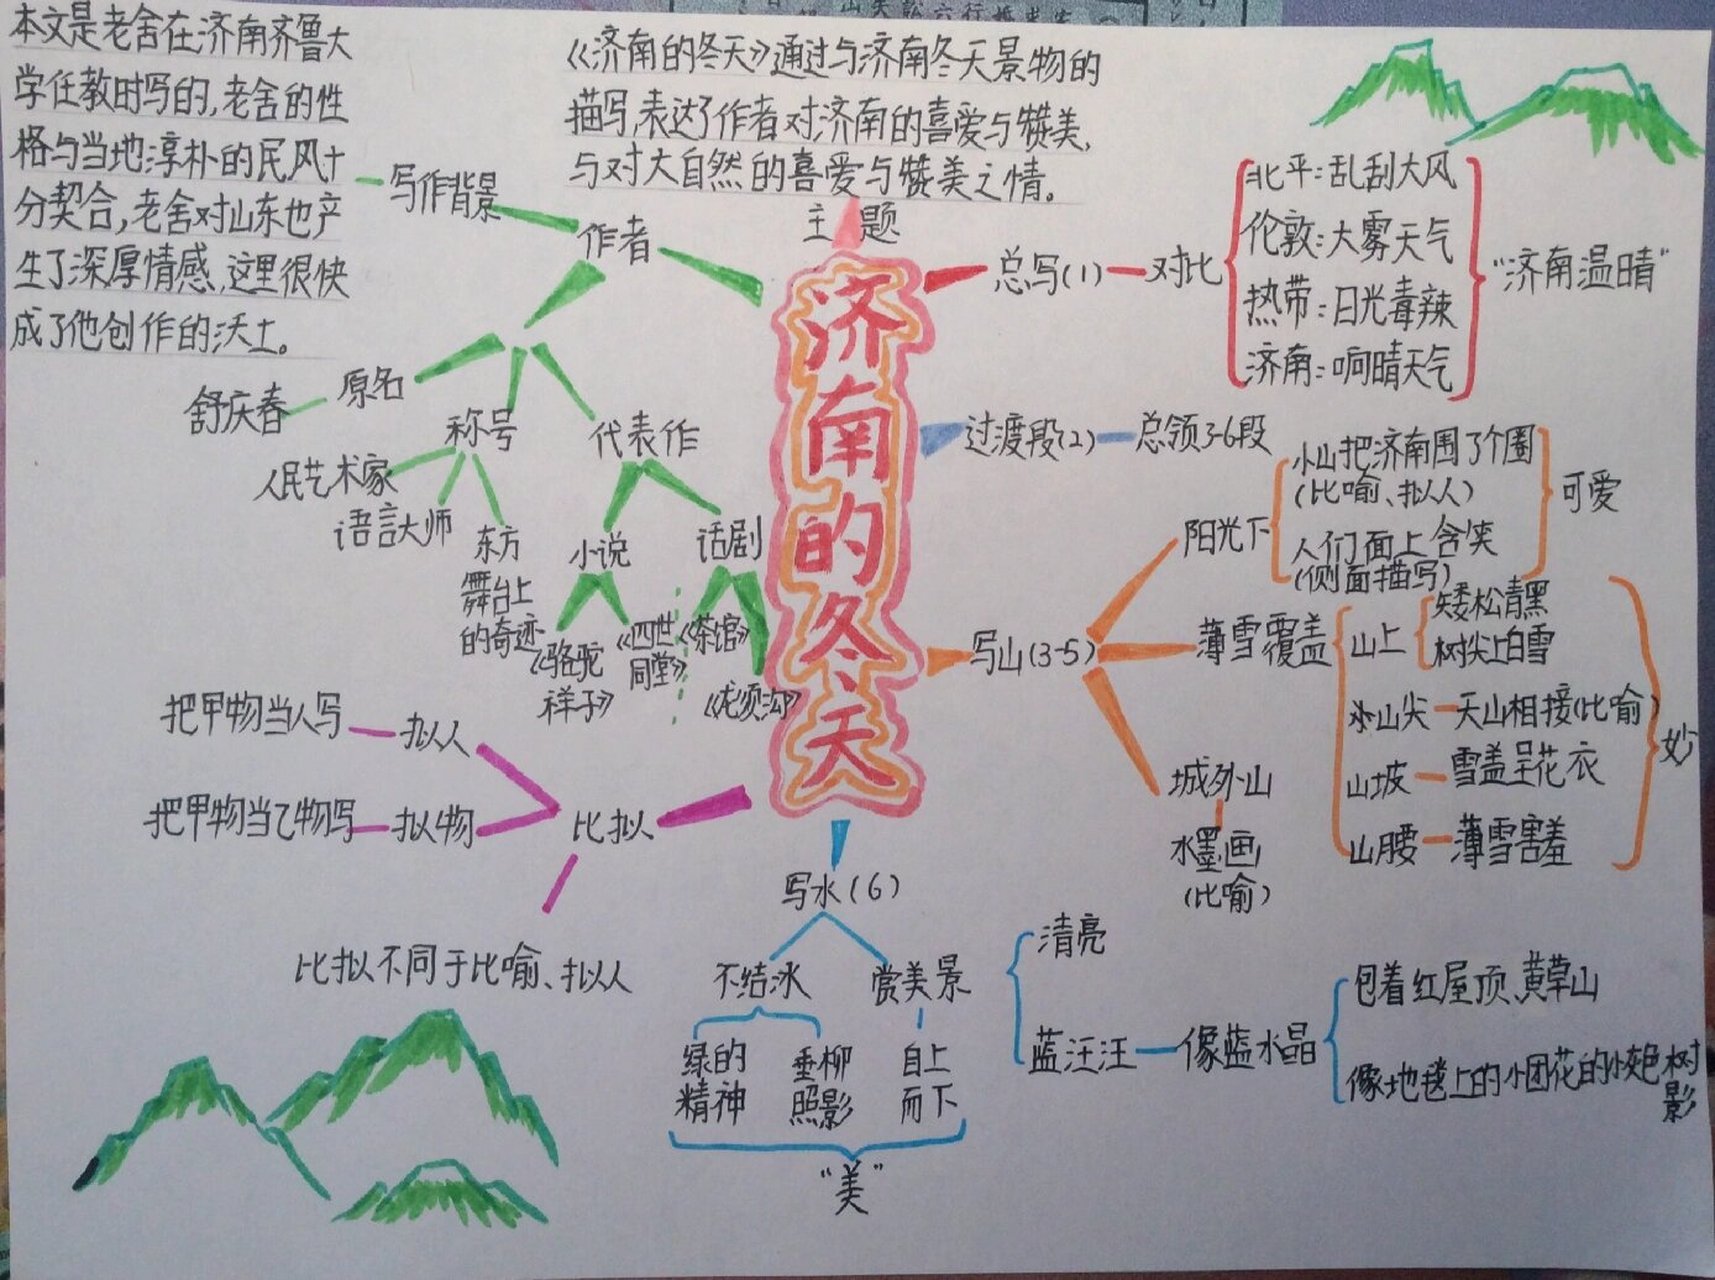 本文是老舍在济南齐鲁大
学任教时写的,老舍的性
格与当地淳朴的民风十
分契合,老舍对山东也产
生了深厚情感,这里很快
成了他创作的沃土。
写作背景
作者
原名
舒庆春
称号
人民艺术家
语言大师
东方
舞台上
的奇迹
代表作
小说
《骆驼
祥子》
《四世
同堂》
话剧
《茶馆》
《龙须沟》
《济南的冬天》通过与济南冬天景物的
描写,表达了作者对济南的喜爱与赞美,
与对大自然的喜爱与赞美之情。
主题
济南的冬天
总写(1)
对比
北平:乱刮大风
伦敦:大雾天气
热带:日光毒辣
济南:响晴天气
“济南温晴”
过渡段(2)
总领3-6段
写山(3-5)
阳光下
小山把济南围了个圈
(比喻、拟人)
人们面上含笑
(侧面描写)
可爱
薄雪覆盖
山上
矮松青黑
树尖上白雪
山尖
天山相接(比喻)
山坡
雪盖呈花衣
山腰
薄雪害羞
妙
城外山
水墨画
(比喻)
比拟
拟人
把甲物当人写
拟物
把甲物当乙物写
比拟不同于比喻、拟人
写水(6)
不结冰
绿的
精神
垂柳
照影
赏美景
自上
而下
“美”
清亮
蓝汪汪
像蓝水晶
包着红屋顶、黄草山
像地毯上的小团花的小灰色树
影